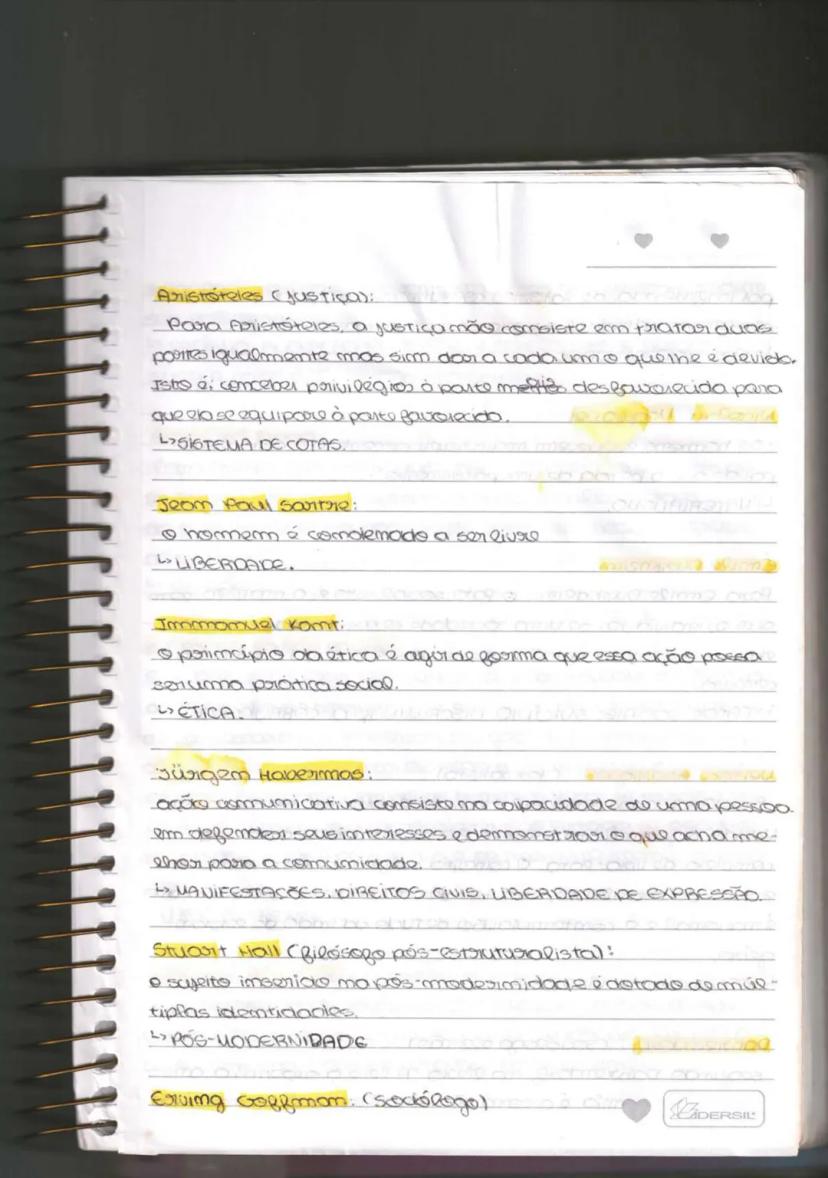 Aristóteles (Justiça):
Para Aristóteles, a justiça não consiste em tratar duas
partes igualmente mas sim dar a cada um o que lhe é devido.
Isto é: conceber privilégios à parte desfavorecida para
que ela se equipare à parte favorecida.
↳ SISTEMA DE COTAS.
Jean Paul Sartre:
O homem é condenado a ser livre
↳ LIBERDADE.
Immanuel Kant:
O princípio da ética é agir de forma que essa ação possa
ser uma prática social.
↳ ÉTICA.
Jürgen Habermas:
ação comunicativa consiste na capacidade de uma pessoa
em defender seus interesses e demonstrar o que acha me-
lhor para a comunidade.
↳ MANIFESTAÇÕES, DIREITOS CIVIS, LIBERDADE DE EXPRESSÃO.
Stuart Hall (filósofo pós-estruturalista):
O sujeito inserido na pós-modernidade é dotado de múl-
tiplas identidades.
↳ PÓS-MODERNIDADE
Erving Goffman: (sociólogo)